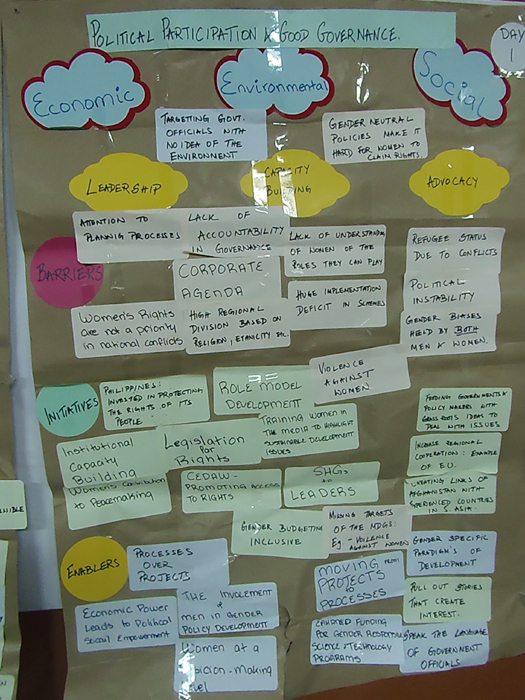 POLITICAL PARTICIPATION & GOOD GOVERNANCE.
DAY
1
Economic
Environmental
Social
TARGETTING GOVT.
OFFICIALS WITH
NO IDEA OF THE
ENVIRONMENT
GENDER NEUTRAL
POLICIES MAKE IT
HARD FOR WOMEN TO
CLAIM RIGHTS.
LEADERSHIP
CAPACITY
BUILDING
ADVOCACY
BARRIERS
ATTENTION TO
PLANNIG PROCESSES
LACK OF
ACCOUNTABILITY
IN GOVERNANCE
LACK OF UNDERSTANDING
OF WOMEN OF THE
ROLES THEY CAN PLAY
REFUGEE STATUS
DUE TO CONFLICTS
CORPORATE
AGENDA
HUGE IMPLEMENTATION
DEFICIT IN SCHEMES
POLITICAL
INSTABILITY
Women's Rights
are not a priority
in national conflicts
HIGH REGIONAL
DIVISION BASED ON
RELIGION, ETHNICITY ETC.
GENDER BIASES
HELD BY BOTH
MEN & WOMEN.
VIOLENCE
AGAINST
WOMEN.
INITIATIVES
PHILIPPINES:
INVESTED IN PROTECTING
THE RIGHTS OF ITS
PEOPLE
ROLE MODEL
DEVELOPMENT
TRAINING WOMEN IN
THE MEDIA TO HIGHLIGHT
SUSTAINABLE DEVELOPMENT
ISSUES
FEEDING GOVERNMENTS &
POLICY MAKERS WITH
GRASSROOTS IDEAS TO
DEAL WITH ISSUES
Institutional
Capacity
Building
Legislation
for
Rights
INCREASE REGIONAL
COOPERATION: EXAMPLE
OF EU.
Women's Contribution
to Peacemaking
CEDAW-
PROMOTING ACCESS
TO RIGHTS
SHGs
to
LEADERS
CREATING LINKS OF
AFGHANISTAN WITH
EXPERIENCED COUNTRIES
IN S. ASIA.
GENDER BUDGETING
INCLUSIVE
MISSING TARGETS
OF THE MDGS:
Eg.- VIOLENCE
AGAINST WOMEN
ENABLERS
PROCESSES
OVER
PROJECTS
GENDER SPECIFIC
PARADIGM'S OF
DEVELOPMENT
MOVING FROM
PROJECTS
to
PROCESSES
Economic Power
Leads to Political
Social Empowerment
THE INVOLEMENT
of
MEN IN GENDER
POLICY DEVELOPMENT
PULL OUT STORIES
THAT CREATE
INTEREST.
FUNDING
FOR GENDER RESPONSIVE
SCIENCE & TECHNOLOGY
PROGRAMS
SPEAK THE LANGUAGE
OF GOVERNMENT
OFFICIALS
Women at a
-Making